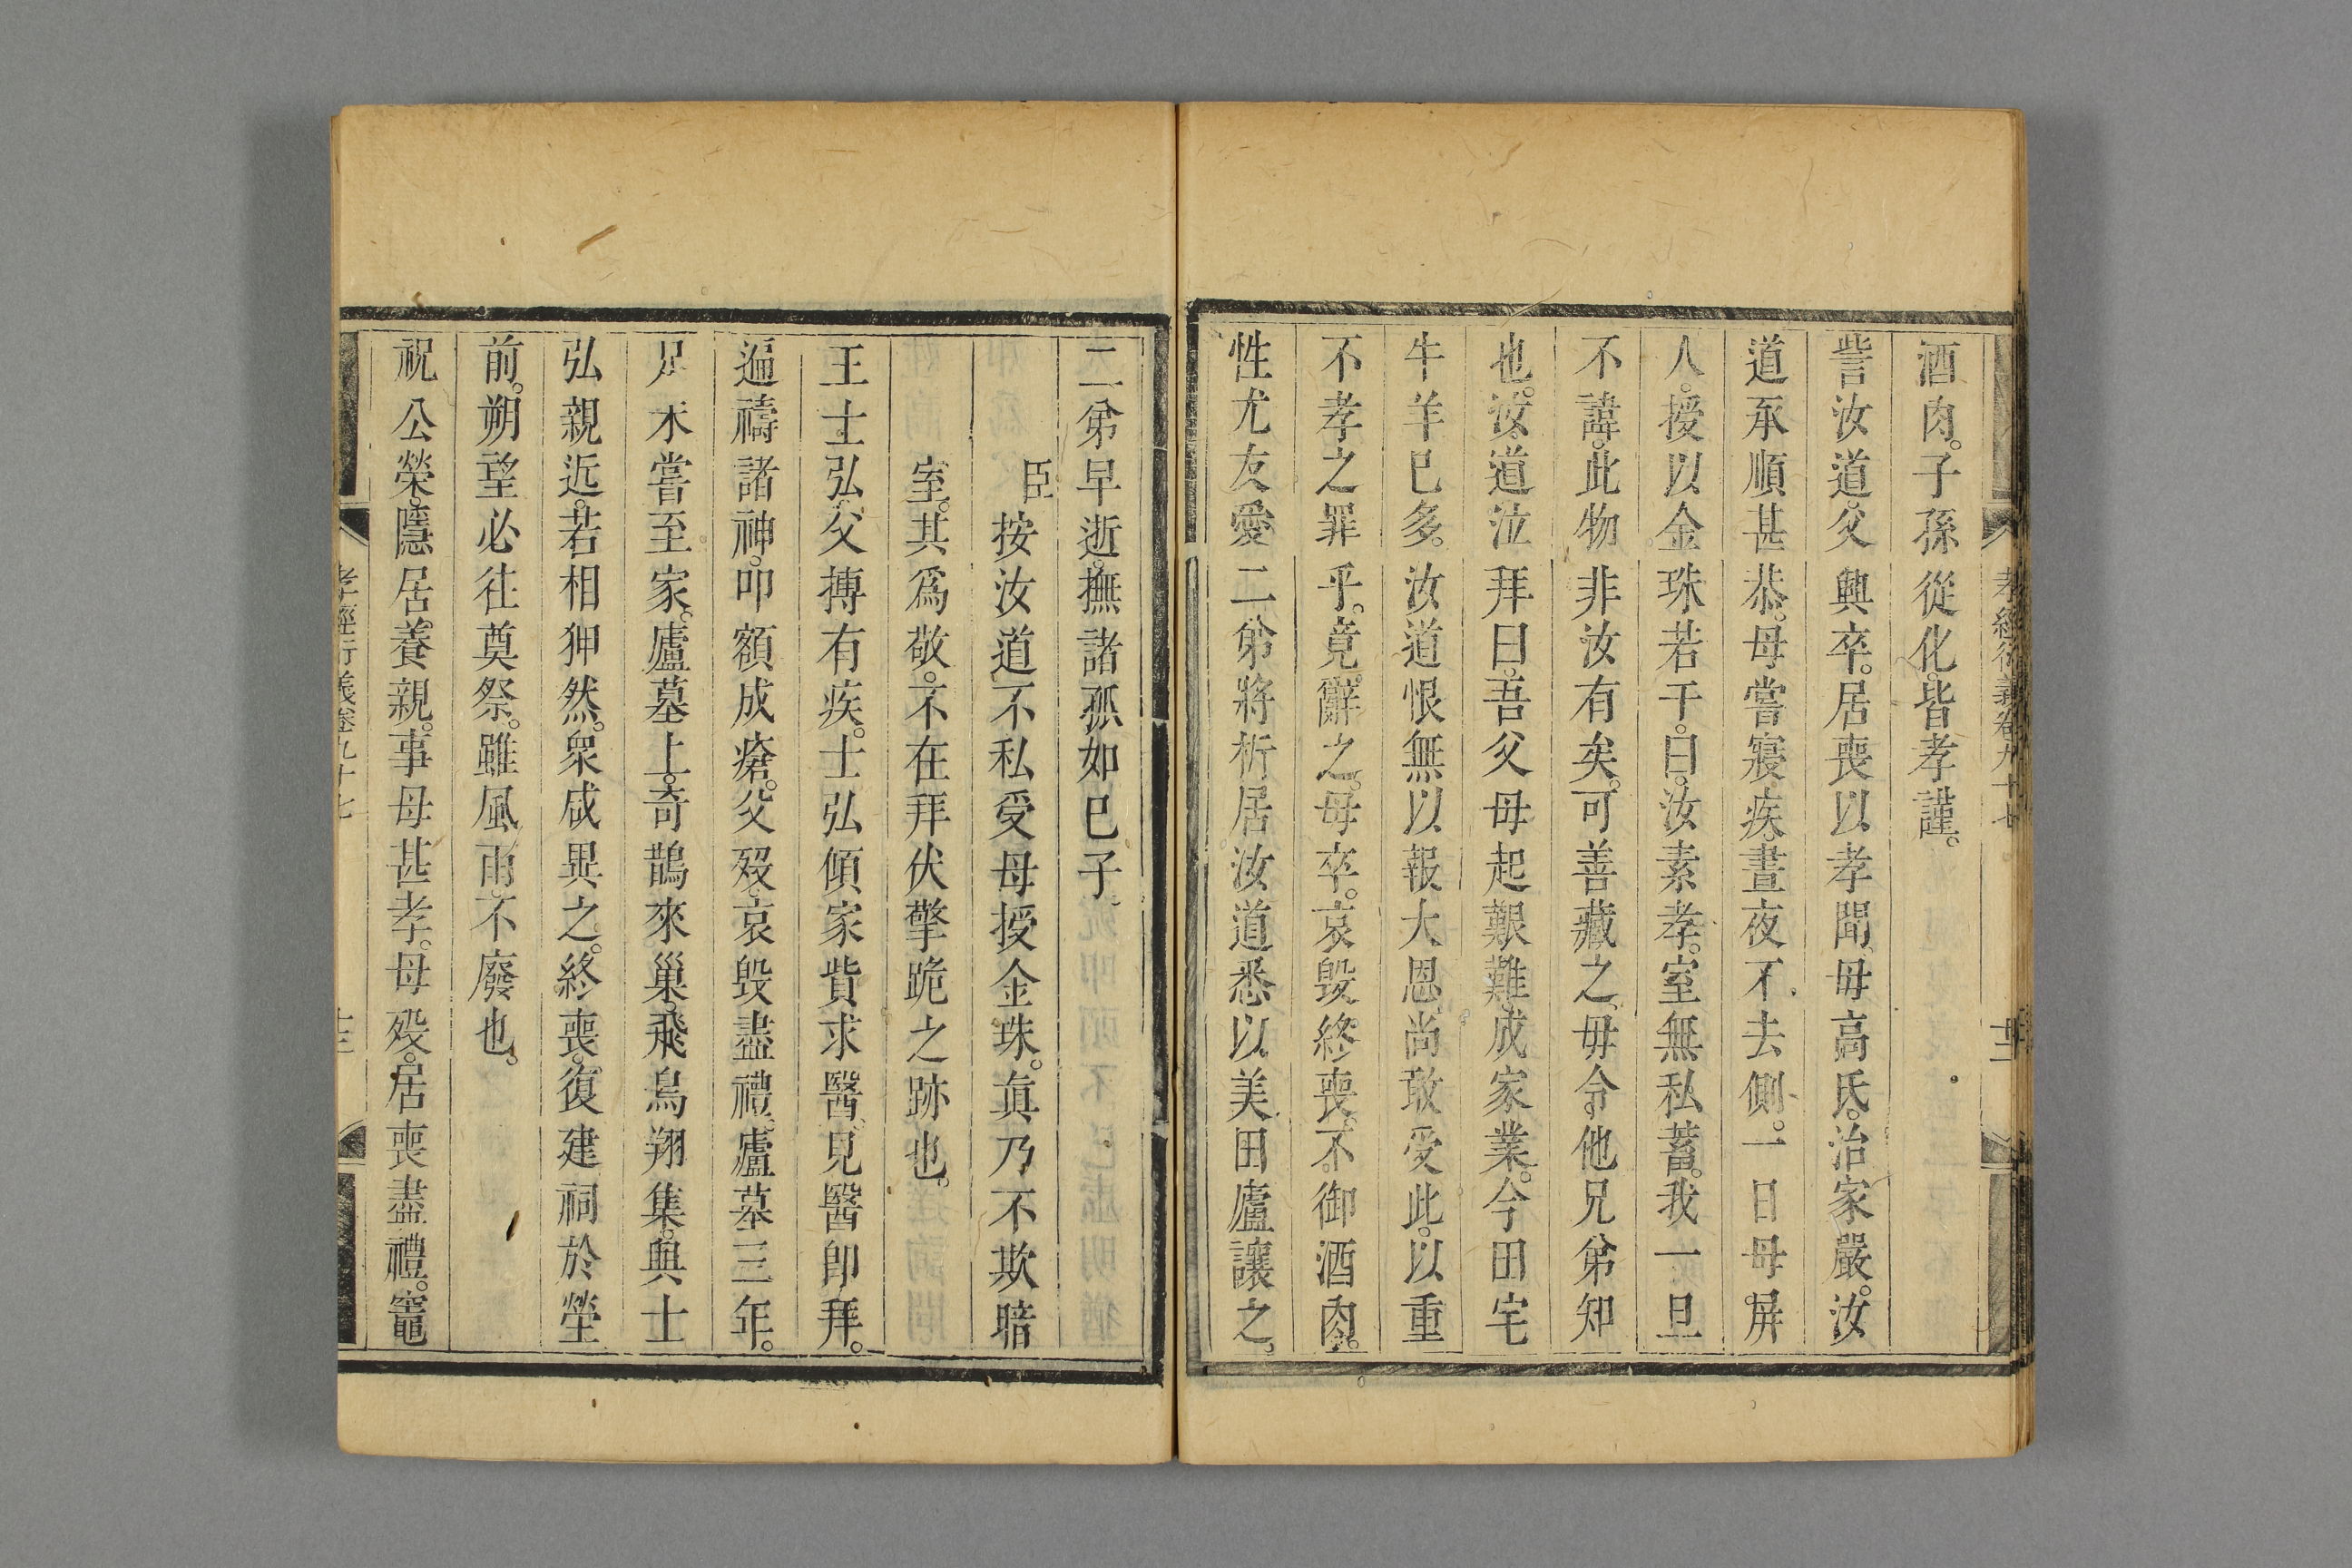 孝經衍義卷九十七
酒肉。子孫從化。皆孝謹。
訾汝道。父興卒。居喪以孝聞。母高氏。治家嚴。汝
道承順甚恭。母嘗寢疾。晝夜不去側。一日母屏
人。授以金珠若干。曰。汝素孝。室無私蓄。我一旦
不諱。此物非汝有矣。可善藏之。毋令他兄弟知
也。汝道泣拜曰。吾父母起艱難。成家業。今田宅
牛羊已多。汝道恨無以報大恩。尚敢受此。以重
不孝之罪乎。竟辭之。母卒。哀毀終喪。不御酒肉。
性尤友愛二弟將析居汝道悉以美田廬讓之。
二弟早逝。撫諸孤如已子。
臣按汝道不私受母授金珠。眞乃不欺暗
室。其爲敬。不在拜伏擎跪之跡也。
王士弘父搏有疾。士弘傾家貲求醫。見醫卽拜。
遍禱諸神。叩額成瘡。父歿。哀毀盡禮。廬墓三年。
足未嘗至家。廬墓上。奇鵲來巢。飛鳥翔集。與士
弘親近。若相狎然。衆咸異之。終喪。復建祠於塋
前。朔望必往奠祭。雖風雨不廢也。
祝公榮。隱居養親。事母甚孝。母歿。居喪盡禮。竈
孝經衍義卷九十七